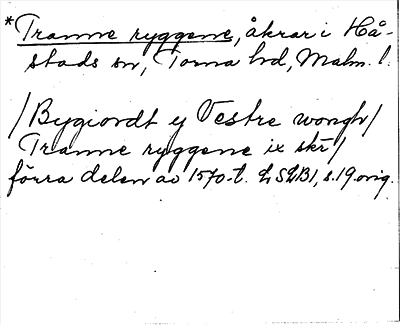 *Tranne ryggene, åkrar i Hå-
stads sn, Torna hd, Malm. l.
/Bygiordt y Vestre wongh/
Tranne ryggene ix skr/
förra delen av 1570-t. LSLB1, s. 19 orig.